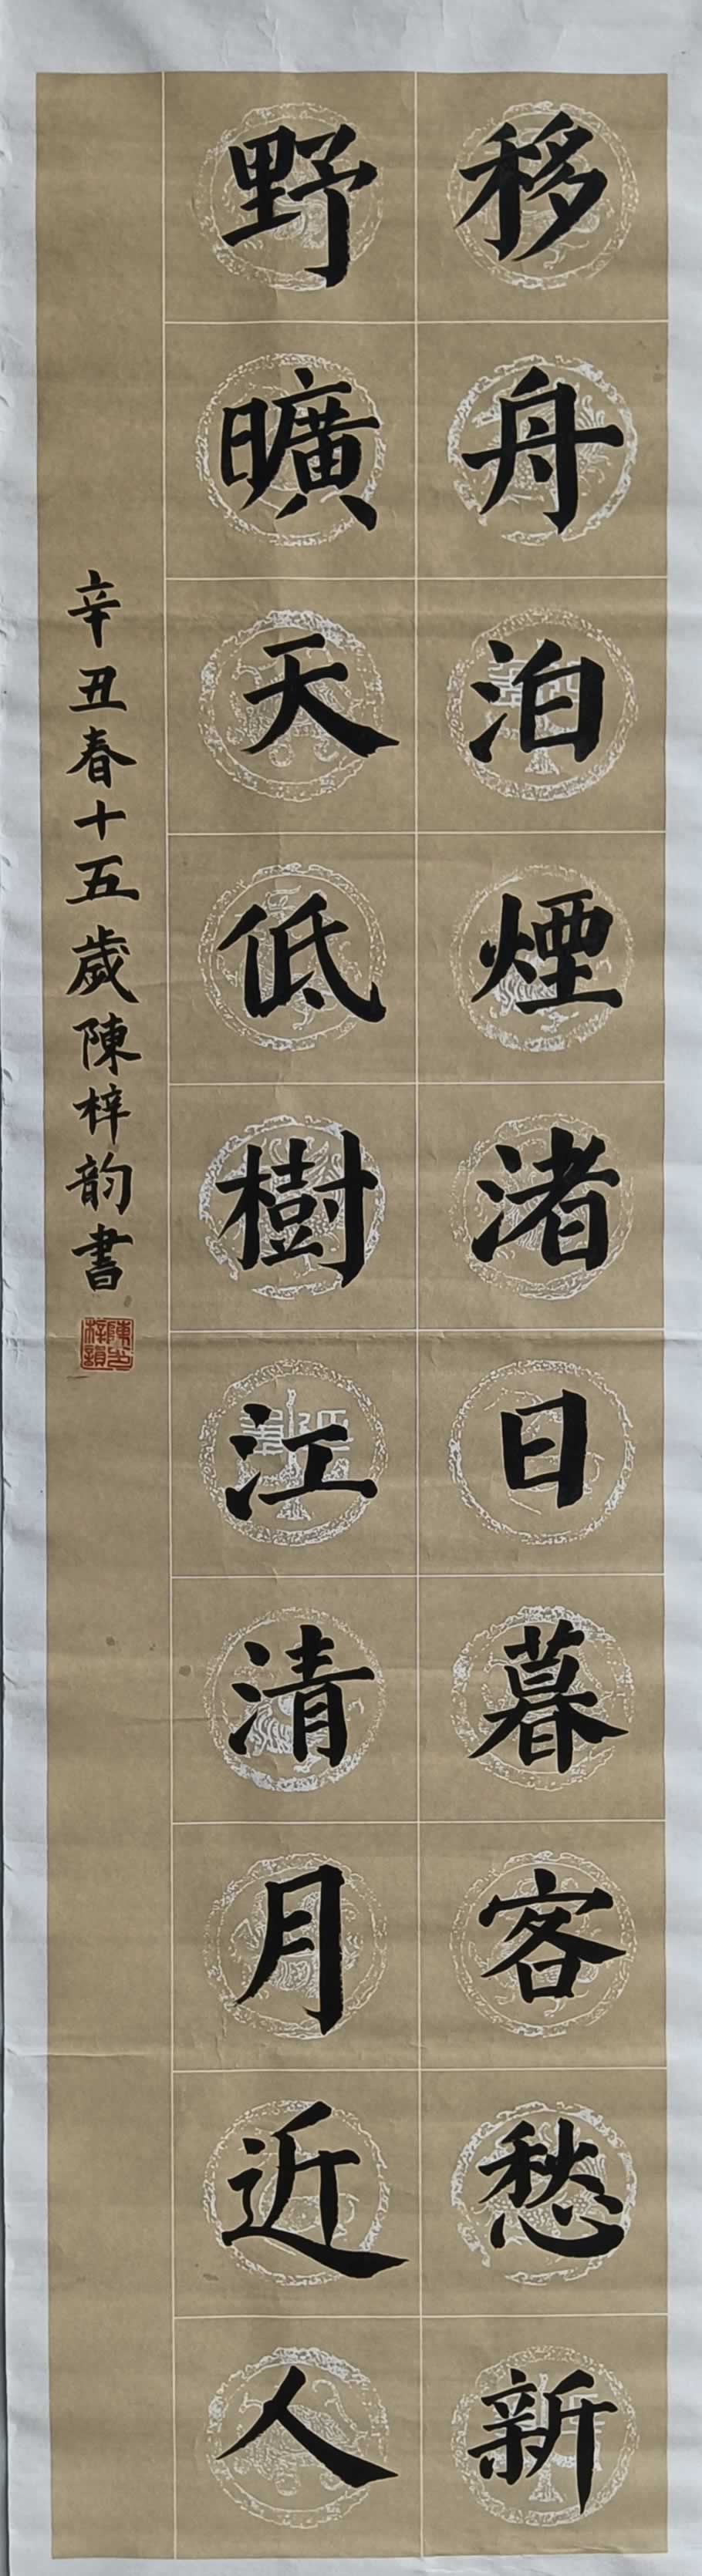 移舟泊煙渚日暮客愁新
野曠天低樹江清月近人
辛丑春十五歲陳梓韵書
陳梓韻印